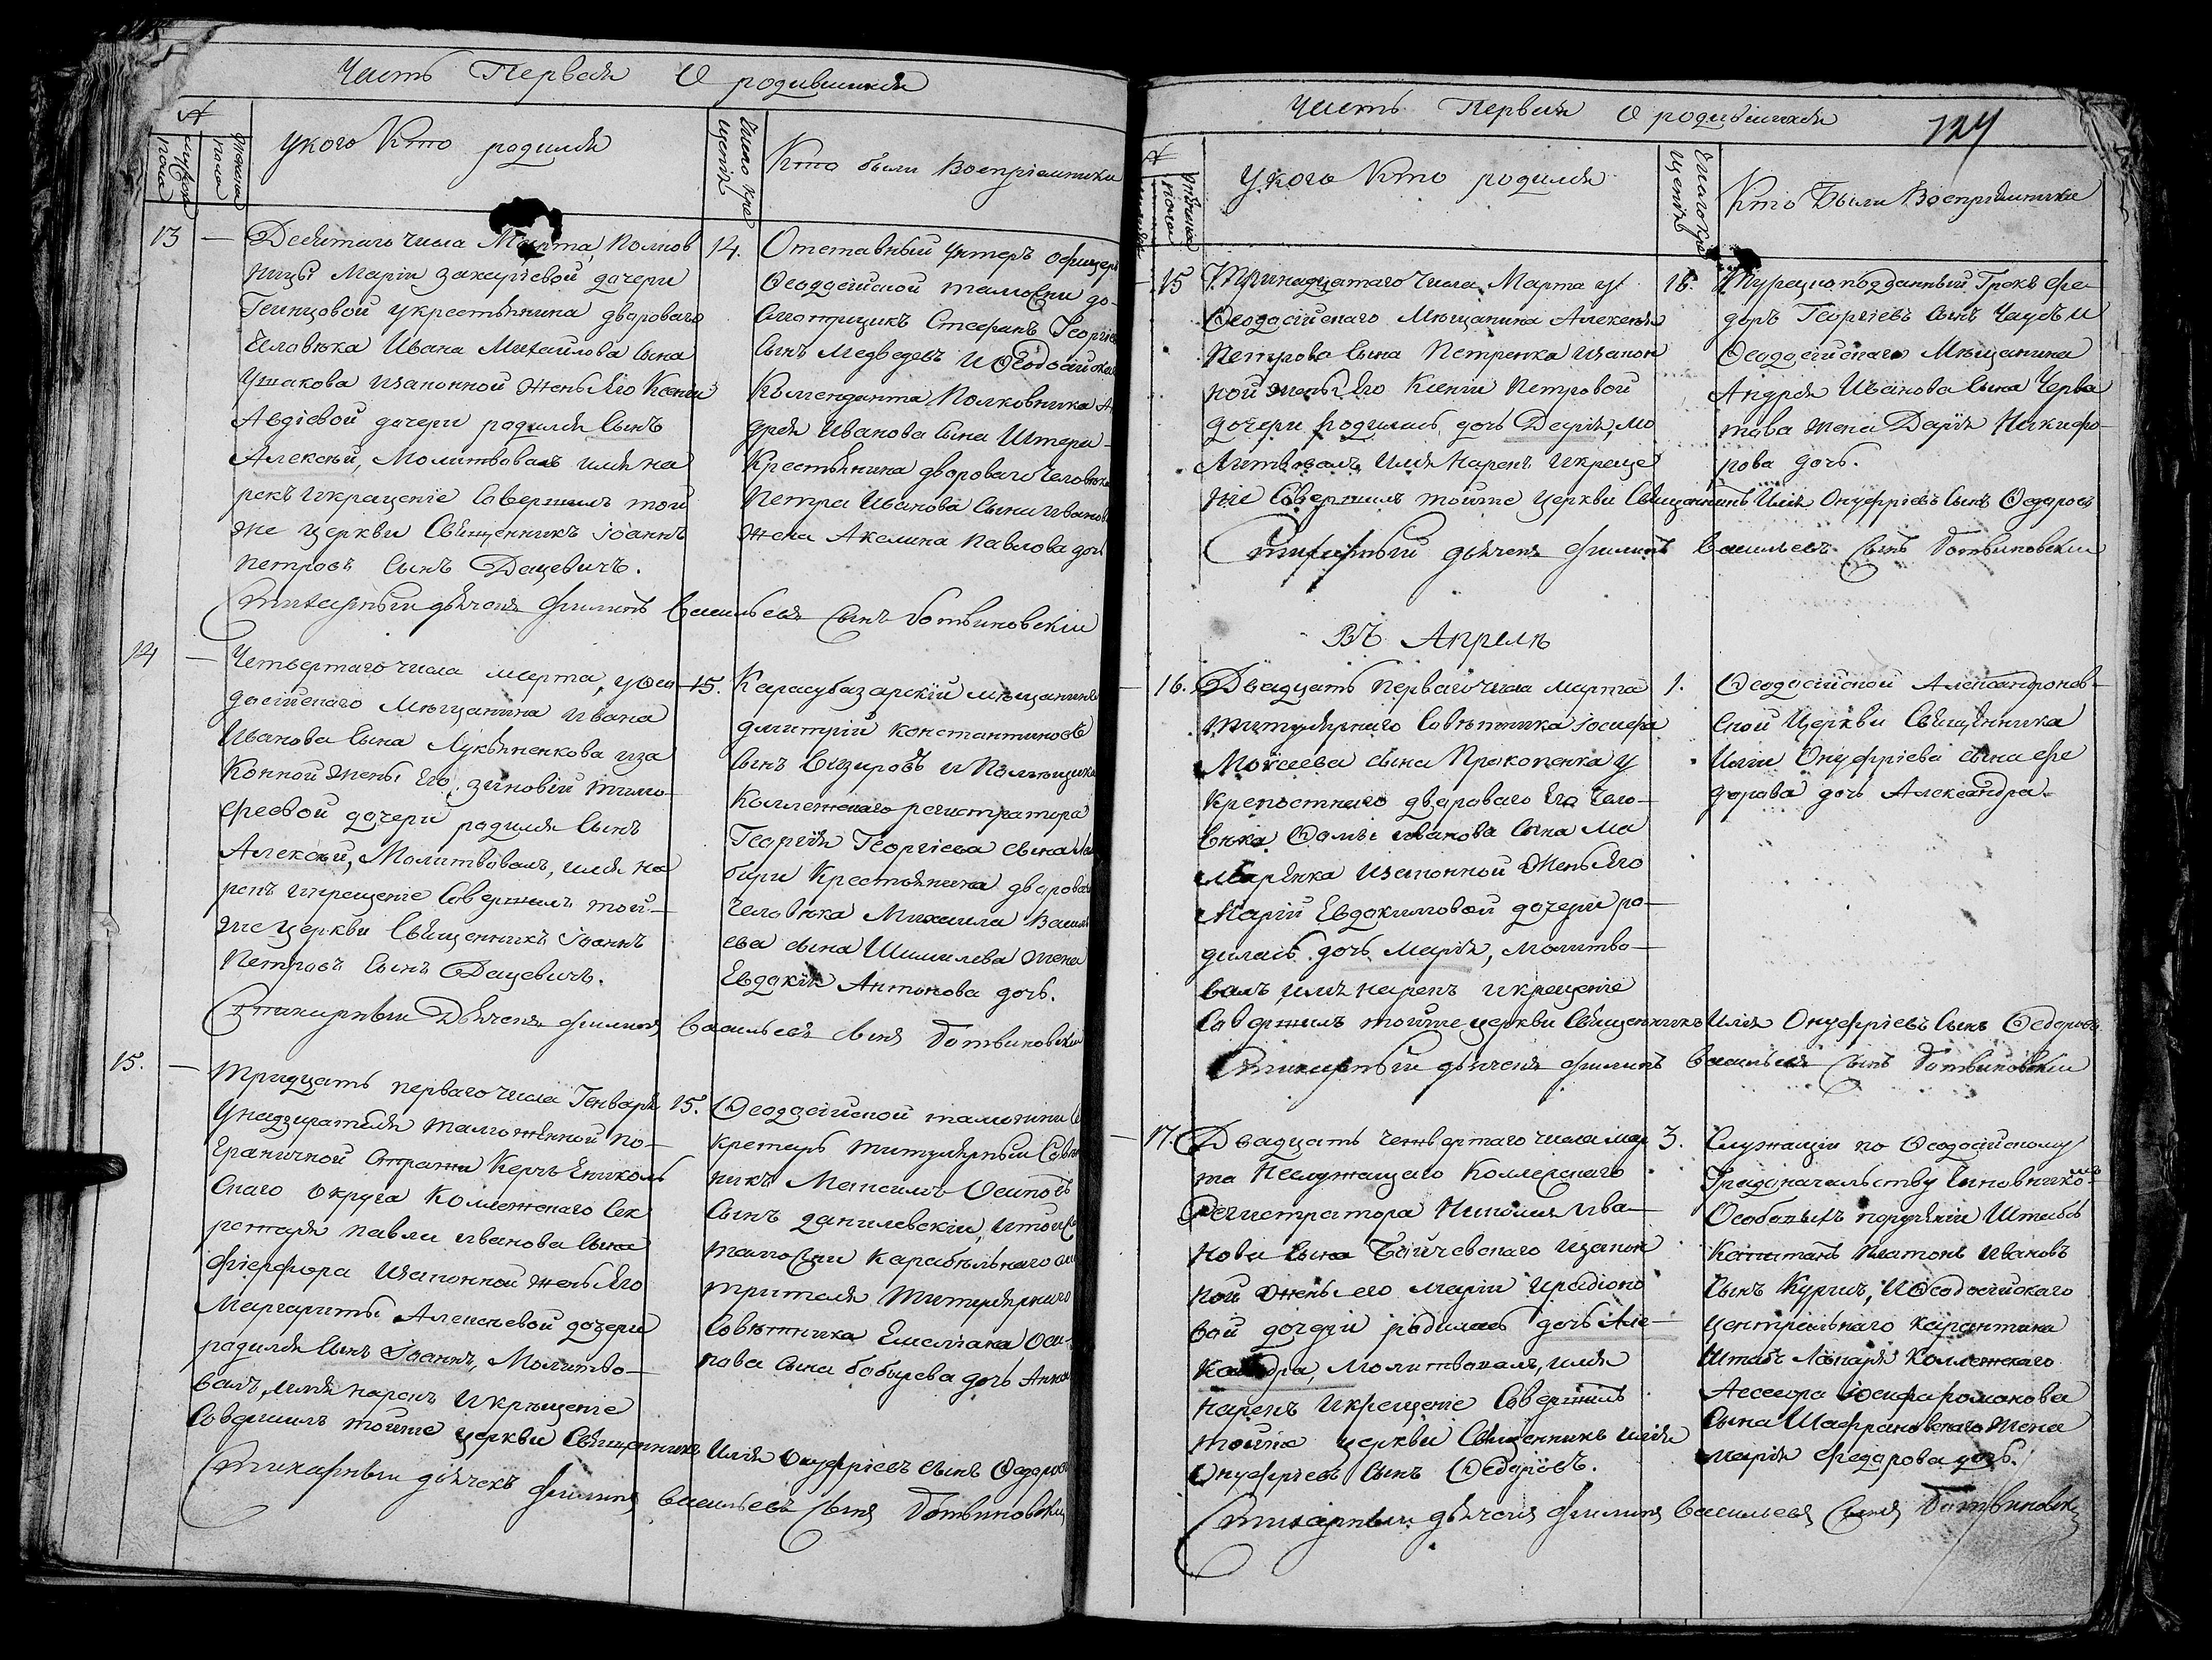 Часть Первая О родившихся
№
мужеска пола
женска пола
У кого Кто родился
Число кре
щенія
Кто были Воспріемники
13
Девятаго числа Марта, Полков
ницы Маріи Захаріевой дочери
укрестьянина двороваго
Человека Ивана Михаилова Сына
Ушакова изаконной жены Его Ксеніи
Авдіевой дочери родился Сынъ
Алексей, Молитвовалъ имя на
рекъ икрещеніе Совершилъ той
же церкви Священникъ Іоаннъ
Петровъ Сынъ Дацевичъ.
14.
Отставный Унтеръ Офицеръ
Ѳеодосійской таможни до-
смотрщикъ Стефанъ Георгіев
Сынъ Медведевъ и Ѳеодосійска
Комменданта Полковника А
дрея Иванова Сына Штери-
Крестьянина двороваго Человека
Петра Иванова Сына Иванов
жена Акелина Павлова доч
Стихарный дьячекъ Филиппъ Васильевъ Сынъ Ботвиновскій
14
Четвертаго числа марта, у Ѳео
досійскаго Мещанина Ивана
Иванова Сына Лукьяненкова иза
конной жены Его, Зиновіи Тимо-
феевой дочери родился Сынъ
Алексей, Молитвовалъ, имя на
рекъ икрещеніе Совершилъ той-
же Церкви Священникъ Іоаннъ
Петровъ Сынъ Дацевичъ.
15.
Карасубазарскій мещанинъ
Дмитрій Константиновъ
Сынъ и Помещика
Коллежскаго регистратора
Георгія Георгіева сына
бири Крестьянина дворова
Человека Михаила Василь
ева сына Шишилева жена
Евдокія Антонова дочь.
Стихарный Дьячекъ Филиппъ Васильевъ Сынъ Ботвиновскій
15.
Тридцать перваго числа Генваря
Унадзирателя таможенной по-
граничной Стражи Керчъ Ениколь
скаго округа Коллежскаго Сек
ретаря Павла Иванова Сына
Фіерфора Изаконной жены Его
Маргариты Алексеевой дочери
родился Сынъ Іоаннъ, Молитво-
валъ, имя нарекъ Икрещеніе
Совершилъ тойже церкви Священникъ Илія Онуфріевъ сынъ Ѳедоров
15.
Ѳеодосійской таможни Се
кретарь титулярный Совет
никъ Максимъ Осиповъ
Сынъ Данилевскій, итойже
таможни Карабельнаго смо
трителя Титулярнаго
Советника Емельяна Оси-
пова Сына Бобырева дочь Анна
Стихарный дьячекъ Филиппъ Васильевъ Сынъ Ботвиновскій
Часть Первая О родившихся
124
№
женска
пола
У кого Кто родился
Число кре
щенія
Кто Были Воспріемники
15
Тринадцатаго числа Марта у
Ѳеодосійскаго Мещанина Алексея
Петрова Сына Петренка изакон
ной жены Его Ксеніи Петровой
дочери родилась дочь Дарія, Мо
литвовалъ имя нарекъ икреще
ніе Совершилъ тойже церкви Священникъ Илія Онуфріевъ Сынъ Ѳедоровъ
16.
Турецкоподданный Грекъ Фе-
доръ Георгіевъ Сынъ Чаубъ и
Ѳеодосійскаго Мещанина
Андрея Иванова Сына Черва
това жена Дарія Никифо-
рова дочь.
Стихарный дьячекъ Филиппъ Васильевъ Сынъ Ботвиновскій
Въ Апреле
16.
Двадцать перваго числа марта
титулярнаго Советника Іосифа
Моісеева Сына Прокопенка у
Крепостнаго двороваго Его Чело-
века Ѳомы Иванова Сына Ма
маренка изаконной жены Его
Маріи Евдокимовой дочери ро-
дилась дочь Марія, молитво-
валъ имя нарекъ икрещеніе
Совершилъ тойже церкви Священникъ Илія Онуфріевъ Сынъ Ѳедоровъ
1.
Ѳеодосійской Александронев-
ской Церкви Священника
Иліи Онуфріева сына Фе
дорова дочь Александра.
Стихарный дьячекъ Филиппъ Васильевъ Сынъ Ботвиновскій
17.
Двадцать четвертаго числа мар
та Неслужащаго Коллежскаго
Регистратора Николая Ива-
нова Сына Бойчевскаго изакон
ной жены его Маріи Иродіоно
вой дочери родилась дочь Але-
ксандра, Молитвовалъ, имя
нарекъ Икрещеніе Совершилъ
тойже церкви Священникъ Илія
Онуфріевъ Сынъ Ѳедоровъ.
3.
Служащій по Ѳеодосійскому
Градоначальству Чиновникомъ
Особыхъ порученій Штабсъ
Капитанъ Платонъ Ивановъ
Сынъ Куришъ, И Ѳеодосійскаго
центральнаго карантина
Штабъ Лекаря Коллежскаго
Асессора Іосифа романова
Сына Шафрановскаго жена
Марія Федорова дочь.
Стихарный дьячекъ Филиппъ Васильевъ Сынъ Ботвиновск